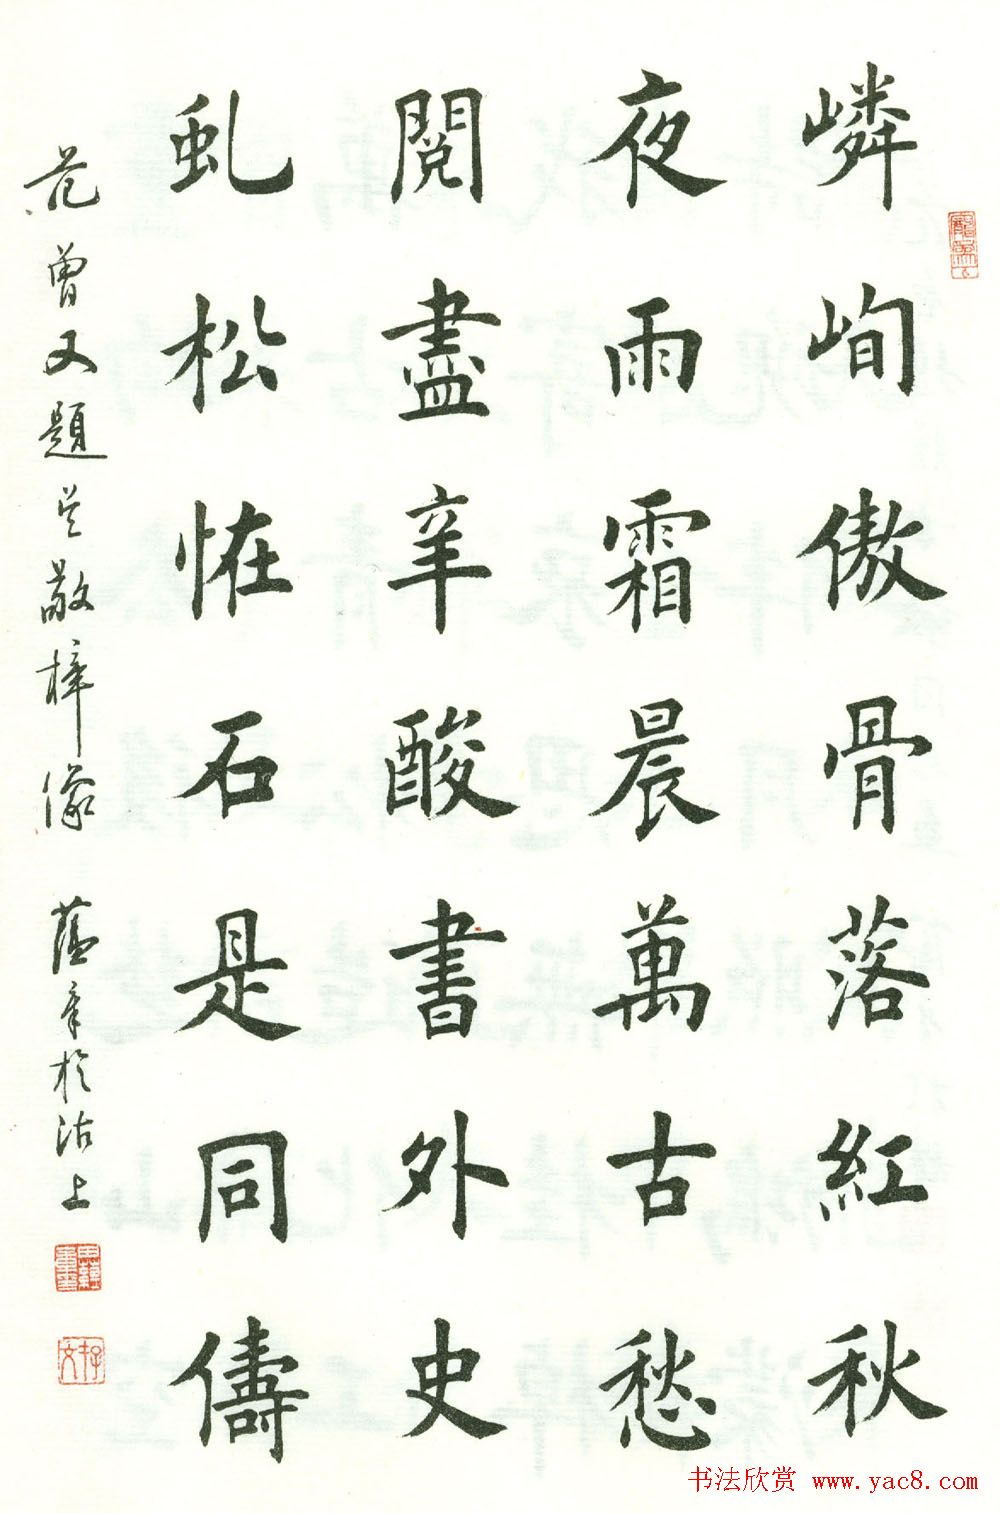 嶙峋傲骨落紅秋
夜雨霜晨萬古愁
閱盡辛酸書外史
虬松恠石是同儔
范曾又題吳敬梓像 蘊章於沽上
书法欣赏 www.yac8.com